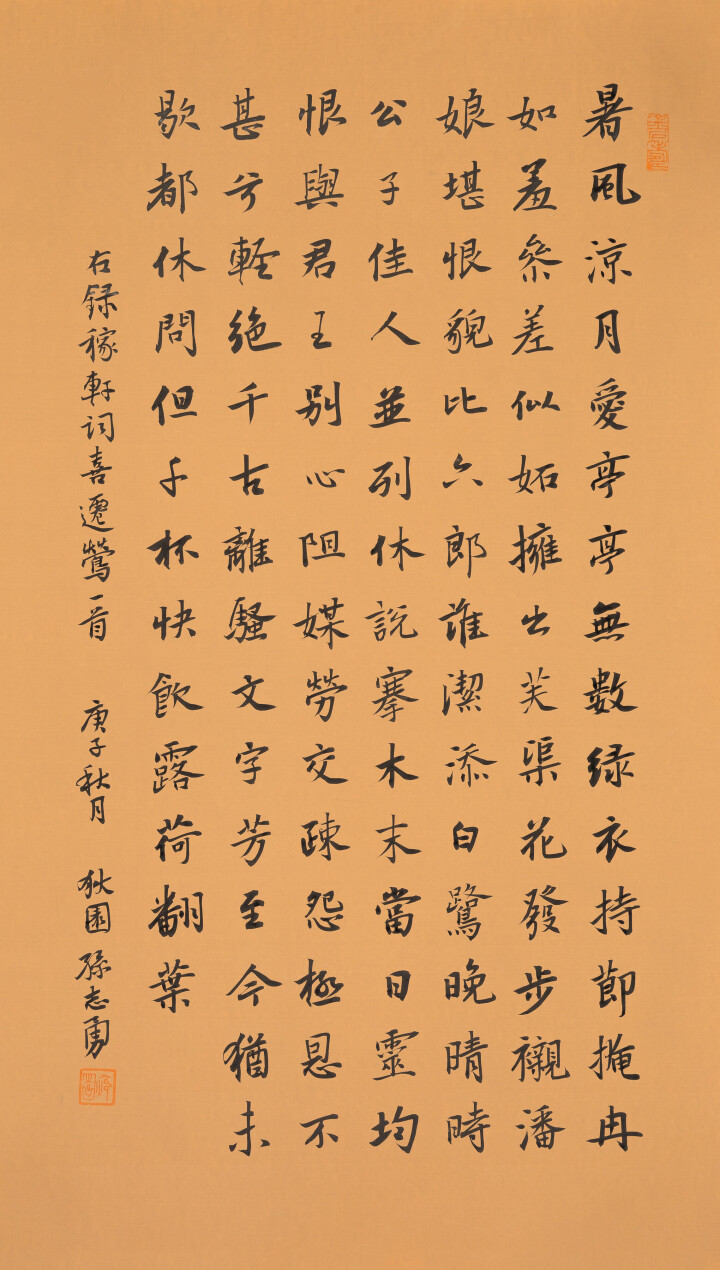 暑風涼月愛亭亭無數緑衣持節掩冉
如羞參差似妬擁出芙渠花發步襯潘
娘堪恨貌比六郎誰潔添白鷺晚晴時
公子佳人並列休説搴木末當日靈均
恨與君王别心阻媒勞交疎怨極恩不
甚兮軽絶千古離騷文字芳至今猶未
歇都休問但千杯快飲露荷翻葉
右録稼軒詞喜遷鶯一首 庚子秋月 狄園 孫志勇